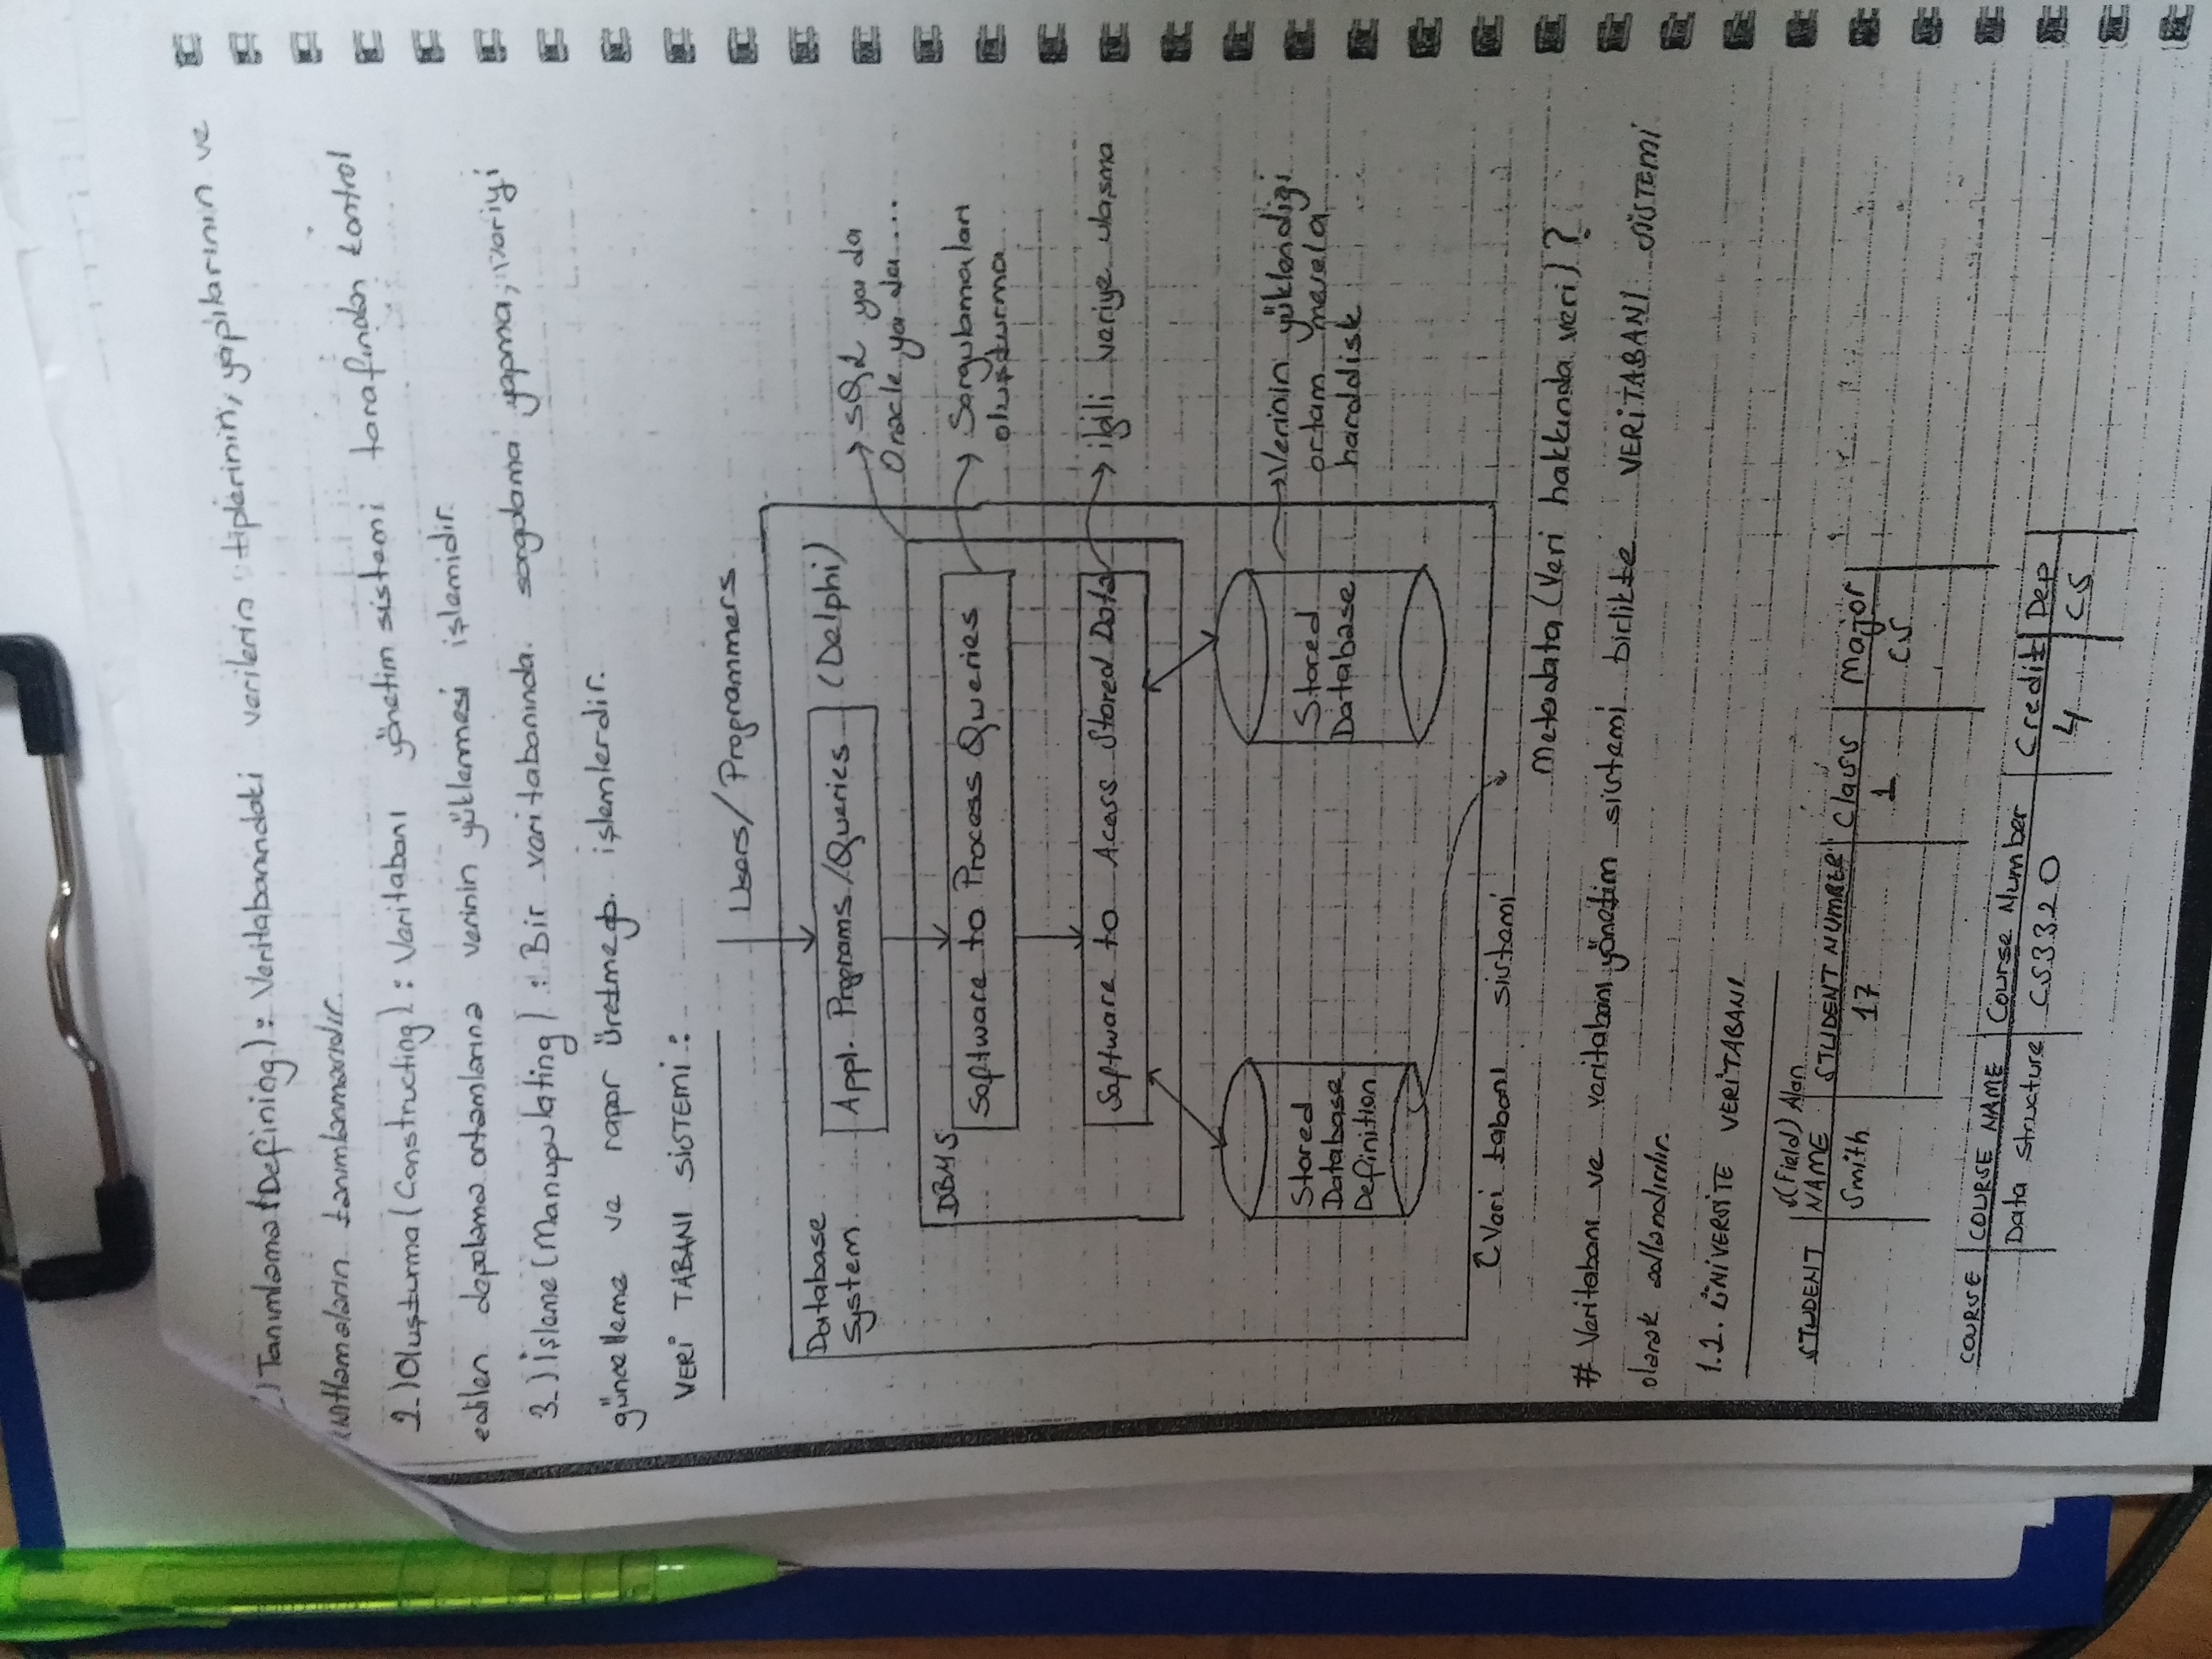 ) Tanımlama (Defining) : Veritabanındaki verilerin tiplerinin, yapılarının ve
kısıtlamaların tanımlanmasıdır.
2-) Oluşturma (Constructing) : Veritabanı yönetim sistemi tarafından kontrol
edilen depolama ortamlarına verinin yüklenmesi işlemidir.
3-) İşleme (Manupulating) : Bir veritabanında sorgulama yapma, veriyi
güncelleme ve rapor üretme gb. işlemlerdir.
VERİ TABANI SİSTEMİ :
Users/ Programmers
Database
System
Appl. Programs /Queries (Delphi)
→ SQL ya da
Oracle ya da ...
DBMS
Software to Process Queries
→ Sorgulamaları
oluşturma
Software to Acess Stored Data
→ ilgili veriye ulaşma
Stored
Database
Definition
Stored
Database
→ Verinin yüklendiği
ortam mesela
harddisk
Veri tabanı sistemi
Metadata (Veri hakkında veri) ?
# Veritabanı ve veritabanı yönetim sistemi birlikte VERİTABANI SİSTEMİ
olarak adlandırılır.
1.2. ÜNİVERSİTE VERİTABANI
(Field) Alan
STUDENT NAME STUDENT NUMBER Class Major
Smith 17 1 CS
COURSE COURSE NAME Course Number Credit Dep
Data Structure CS3320 4 CS